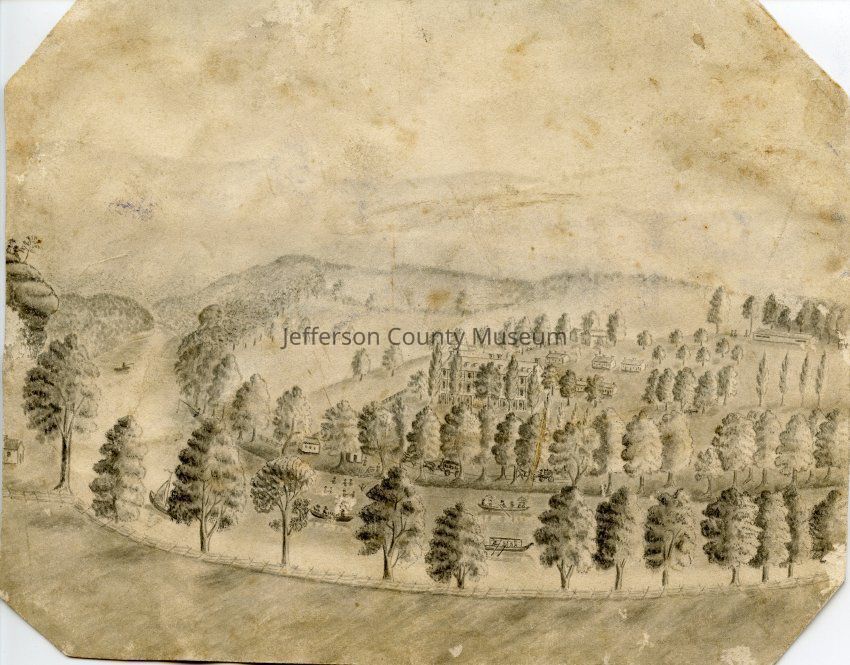 Jefferson County Museum